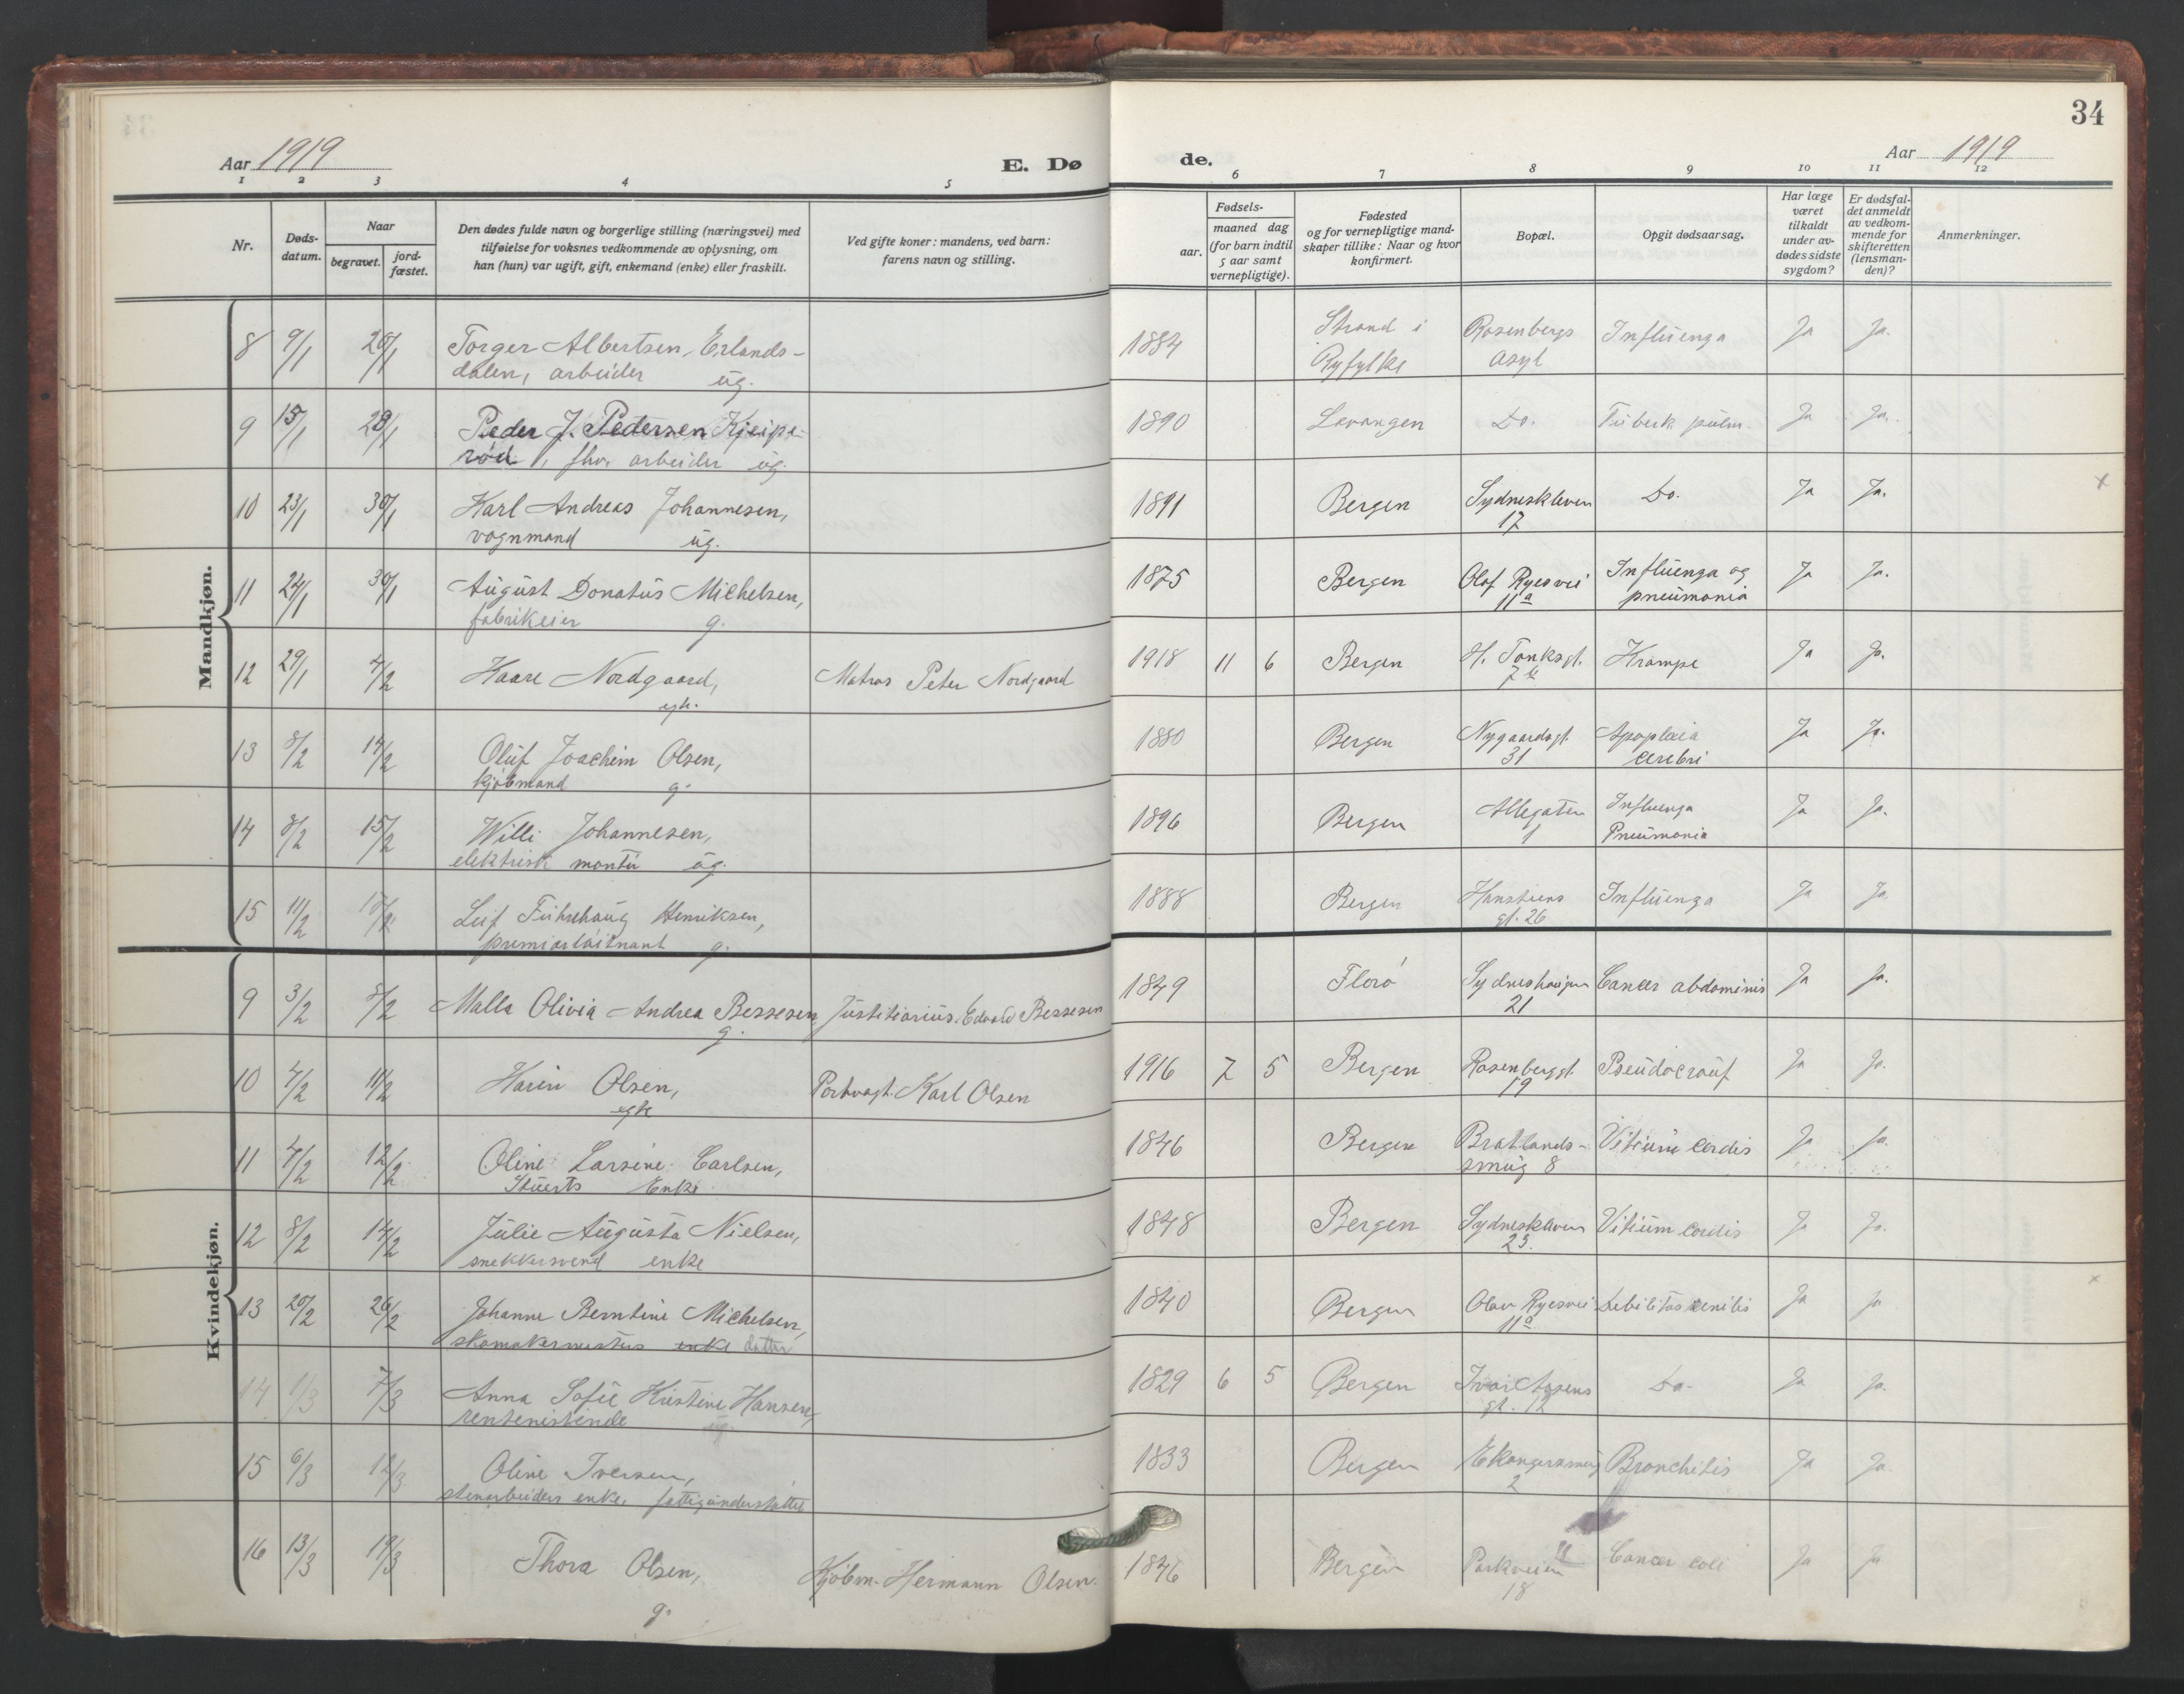 34
Aar 1919
E. Dø
de.
Aar 1919
1 2 3 4 5 6 7 8 9 10 11 12
Nr.
Døds-
datum.
Naar
begravet.
jord-
fæstet.
Den dødes fulde navn og borgerlige stilling (næringsvei) med
tilføielse for voksnes vedkommende av oplysning, om
han (hun) var ugift, gift, enkemand (enke) eller fraskilt.
Ved gifte koner: mandens, ved barn:
farens navn og stilling.
Fødsels-
aar.
maaned dag
(for barn indtil
5 aar samt
vernepligtige).
Fødested
og for vernepligtige mand-
skaper tillike: Naar og hvor
konfirmert.
Bopæl.
Opgit dødsaarsag.
Har læge
været
tilkaldt
under av-
dødes sidste
sygdom?
Er dødsfal-
det anmeldt
av vedkom-
mende for
skifteretten
(lensman-
den)?
Anmerkninger.
Mandkjøn.
8 9/1 20/1 Torger Albertsen Erlands- 1884 Strand i Rosenbergs Influenza Ja Ja.
dalen, arbeider ug. Ryfylke asyl
9 15/1 Peder J. Pedersen Kjeipe- 1890 Levangen Do. Tuberk. pulm. Ja Ja.
rød, fhv. arbeider ug.
10 23/1 30/1 Karl Andreas Johannesen, 1891 Bergen Sydneskleven Do. Ja Ja. x
vognmand ug. 17
11 24/1 30/1 August Donatus Michelsen, 1875 Bergen Olaf Ryesvei Influenza og Ja Ja.
fabrikeier g. 11a pneumonia
12 29/1 4/2 Kaare Nordgaard, Matros Peter Nordgaard 1918 11 6 Bergen H. Tanksgt. Krampe Ja Ja.
egte.
13 8/2 14/2 Oluf Joachim Olsen, 1880 Bergen Nygaardsgt. Apoplexia Ja Ja.
kjøbmand g. 31 cerebri
14 8/2 15/2 Willi Johannesen, 1896 Bergen Allegaten Influenza Ja Ja.
elektrisk montør ug. 1 Pneumonia
15 11/2 Leif Henriksen, 1888 Bergen Hansteens Influenza Ja Ja
premierløitnant g. gt. 26
Kvindekjøn.
9 3/2 8/2 Malla Olivia Andrea Bessesen Justitiarius Edvard Bessesen 1849 Florø Sydneshaugen Cancer abdominis Ja Ja.
g. 21
10 4/2 11/2 Karin Olsen, Portvagt Karl Olsen 1916 7 5 Bergen Rosenbergsgt. Pseudocroup Ja Ja.
egte 19
11 4/2 12/2 Oline Larsine Carlsen, 1846 Bergen Bratlands- Vitium cordis Ja Ja.
Stuerts Enke smug 8
12 8/2 14/2 Julie Augusta Nielsen, 1848 Bergen Sydneskleven Vitium cordis Ja Ja.
snekkersvend enke 23.
13 20/2 26/2 Johanne Berntine Michelsen, 1840 Bergen Olav Ryesvei Debilitas senilis Ja Ja x
skomakermesters enke datter 11a
14 1/3 7/3 Anna Sofie Kristine Hansen, 1829 6 5 Bergen Ivar Aasens Do. Ja Ja.
rentenistinde ug. gt. 12
15 6/3 12/3 Oline Iversen, 1833 Bergen Ekangersmug Bronchitis Ja Ja.
stenarbeiders enke, fattigunderstøttet 2
16 13/3 19/3 Thora Olsen, Kjøbm. Hermann Olsen. 1846 Bergen Parkveien Cancer coli Ja Ja
g. 18